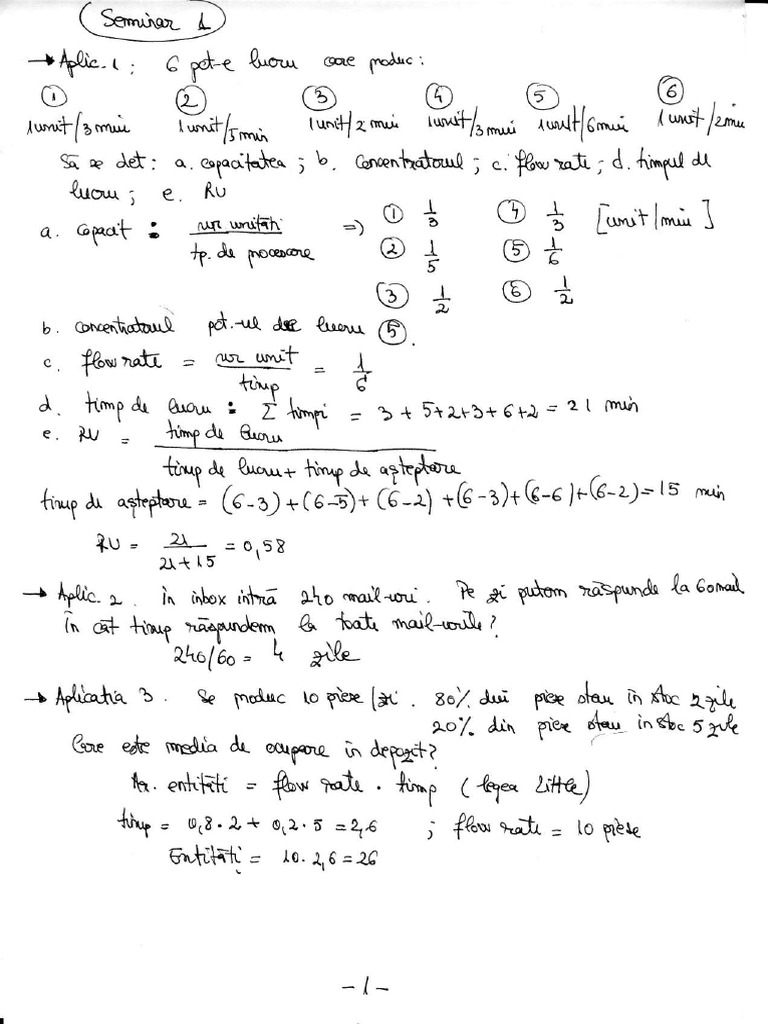 Seminar 1
→ Aplic. 1 : 6 pct-e lucru care produc:
① ② ③ ④ ⑤ ⑥
1 unit/3 min 1 unit/5 min 1 unit/2 min 1 unit/3 min 1 unit/6 min 1 unit/2 min
Să se det: a. capacitatea ; b. concentratorul ; c. flow rate ; d. timpul de
lucru ; e. RU
a. capacit : nr unități / tp. de procesare => ① 1/3 ④ 1/3 [unit/min]
② 1/5 ⑤ 1/6
③ 1/2 ⑥ 1/2
b. concentratorul pct.-ul de lucru ⑤.
c. flow rate = nr unit / timp = 1/6
d. timp de lucru : Σ timpi = 3+5+2+3+6+2 = 21 min
e. RU = timp de lucru / timp de lucru + timp de așteptare
timp de așteptare = (6-3)+(6-5)+(6-2)+(6-3)+(6-6)+(6-2)=15 min
RU = 21 / 21+15 = 0,58
→ Aplic. 2. În inbox intră 240 mail-uri. Pe zi putem răspunde la 60 mail
În cât timp răspundem la toate mail-urile?
240/60 = 4 zile
→ Aplicatia 3. Se produc 10 piese/zi. 80% din piese stau în stoc 2 zile
20% din piese stau in stoc 5 zile
Care este media de ocupare în depozit?
Nr. entități = flow rate · timp (legea Little)
timp = 0,8·2 + 0,2·5 = 2,6 ; flow rate = 10 piese
Entități = 10·2,6=26
-1-